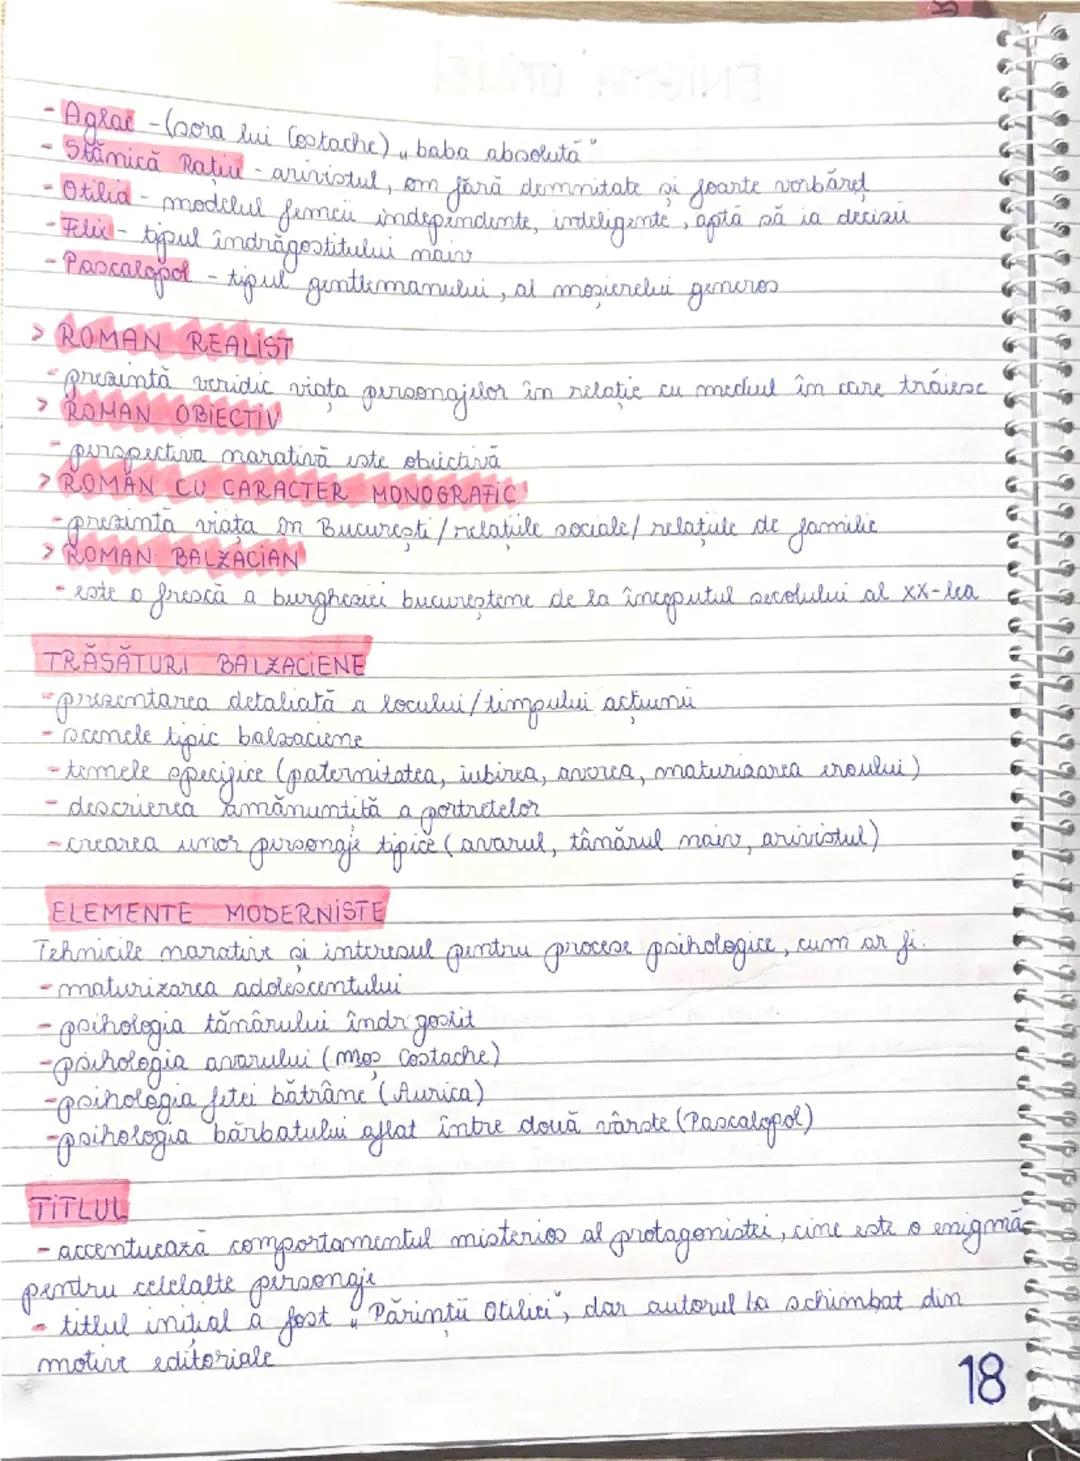 - Aglae - (sora lui Costache) „baba absolută"
- Stănică Rațiu - arivistul, om fără demnitate și foarte vorbăreț
- Otilia - modelul femeii independente, inteligente, aptă să ia decizii
- Felix - tipul îndrăgostitului naiv
- Pascalopol - tipul gentlemanului, al moșierului generos
> ROMAN REALIST
- prezintă veridic viața personajelor în relație cu mediul în care trăiesc
> ROMAN OBIECTIV
- perspectiva narativă este obiectivă
> ROMAN CU CARACTER MONOGRAFIC
- prezintă viața în București/relațiile sociale/relațiile de familie
> ROMAN BALZACIAN
- este o frescă a burgheziei bucureștene de la începutul secolului al XX-lea
TRĂSĂTURI BALZACIENE
- prezentarea detaliată a locului/timpului acțiunii
- scenele tipic balzaciene
- temele specifice (paternitatea, iubirea, averea, maturizarea eroului)
- descrierea amănunțită a portretelor
- crearea unor personaje tipice (avarul, tâmărul naiv, arivistul)
ELEMENTE MODERNISTE
Tehnicile narative și interesul pentru procese psihologice, cum ar fi:
- maturizarea adolescentului
- psihologia tânărului îndr gostit
- psihologia avarului (moș Costache)
- psihologia fetei bătrâne (Aurica)
- psihologia bărbatului aflat între două vârste (Pascalopol)
TITLUL
- accentuează comportamentul misterios al protagonistei, cine este o enigmă
pentru celelalte personaje
- titlul inițial a fost „Părinții Otiliei", dar autorul l-a schimbat din
motive editoriale
18